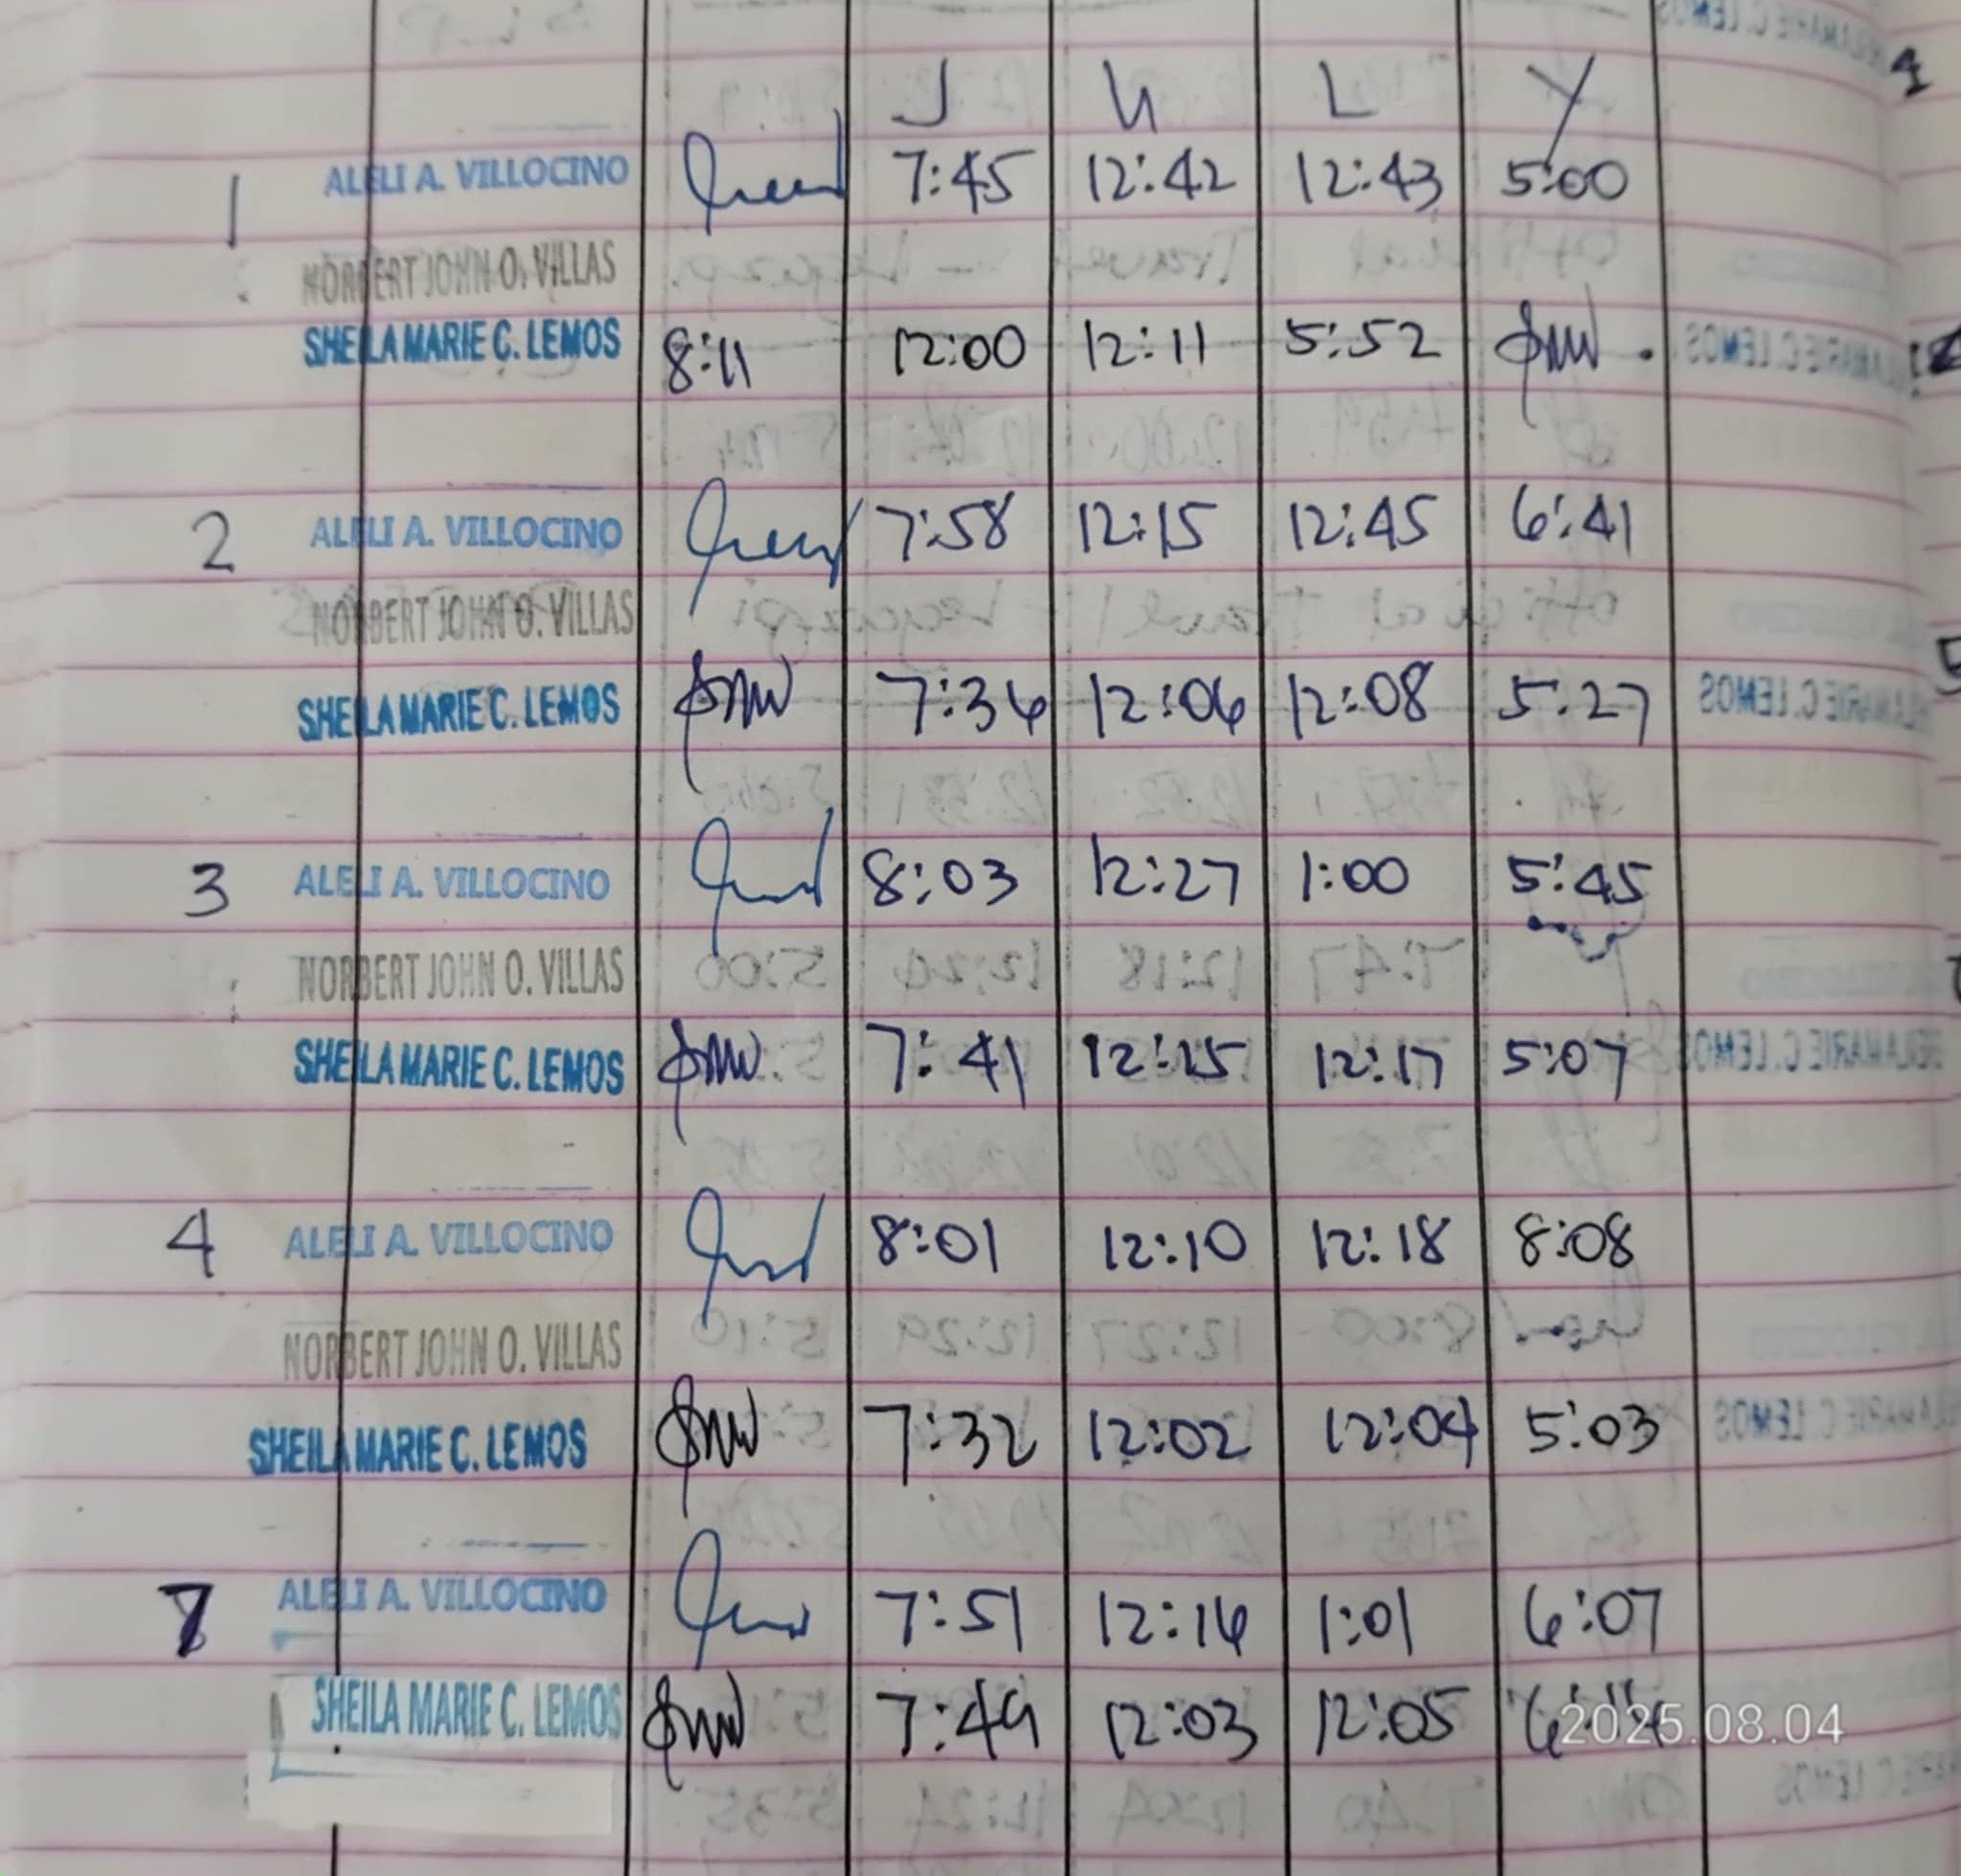 J U L Y
1 ALELI A. VILLOCINO 7:45 12:42 12:43 5:00
NORBERT JOHN O. VILLAS
SHEILA MARIE C. LEMOS 8:11 12:00 12:11 5:52
2 ALELI A. VILLOCINO 7:58 12:15 12:45 6:41
NORBERT JOHN O. VILLAS
SHEILA MARIE C. LEMOS 7:36 12:06 12:08 5:27
3 ALELI A. VILLOCINO 8:03 12:27 1:00 5:45
NORBERT JOHN O. VILLAS
SHEILA MARIE C. LEMOS 7:41 12:15 12:17 5:07
4 ALELI A. VILLOCINO 8:01 12:10 12:18 8:08
NORBERT JOHN O. VILLAS
SHEILA MARIE C. LEMOS 7:32 12:02 12:04 5:03
7 ALELI A. VILLOCINO 7:51 12:16 1:01 6:07
SHEILA MARIE C. LEMOS 7:49 12:03 12:05
2025.08.04